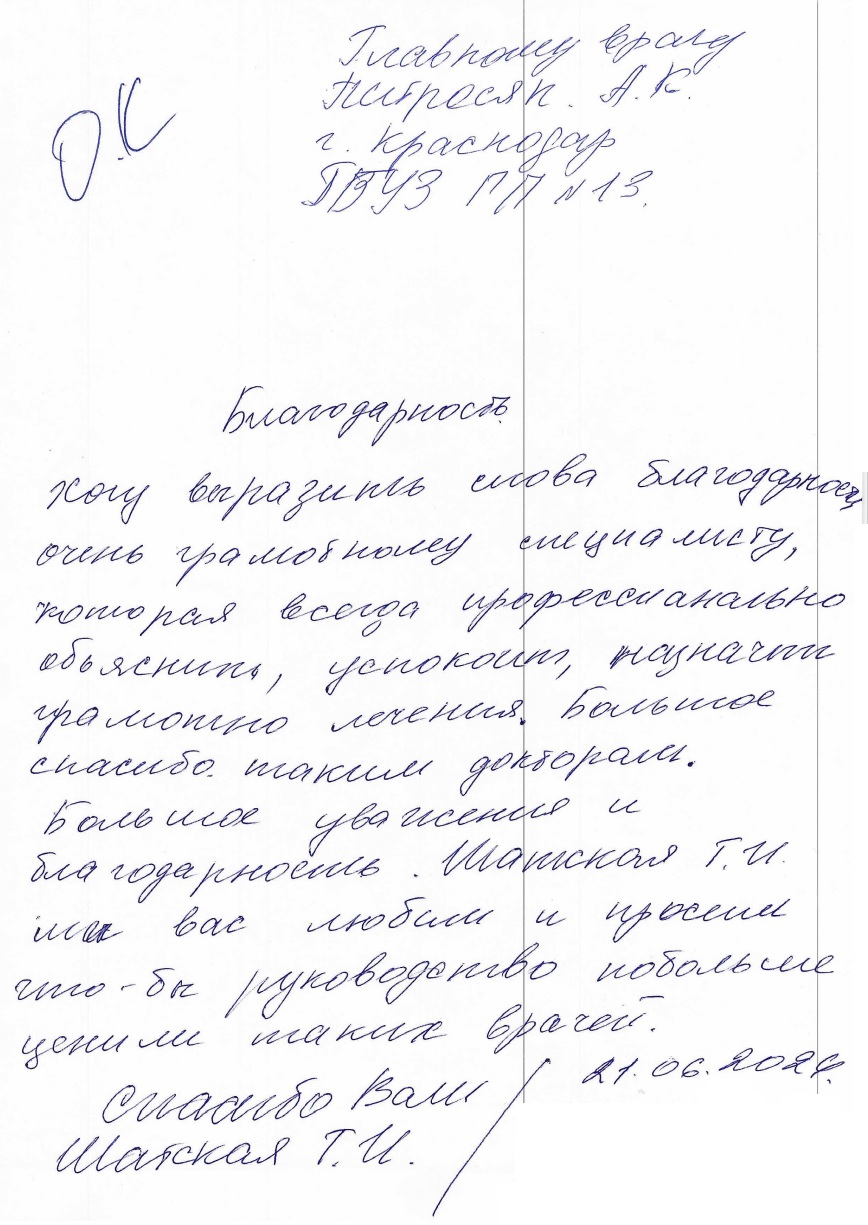 Главному врачу
Петросян. А.К.
г. Краснодар
ГБУЗ ГП №13.
ОК
Благодарность.
Хочу выразить слова благодарности
очень грамотному специалисту,
которая всегда профессианально
обьяснить, успокоит, назначит
грамотно лечения. Большое
спасибо таким докторам.
Большое уважения и
благодарность. Шатская Т.И.
мы вас любим и просим
что-бы руководство побольше
ценили таких врачей.
21.06.2024.
Спасибо Вам
Шатская Т.И.